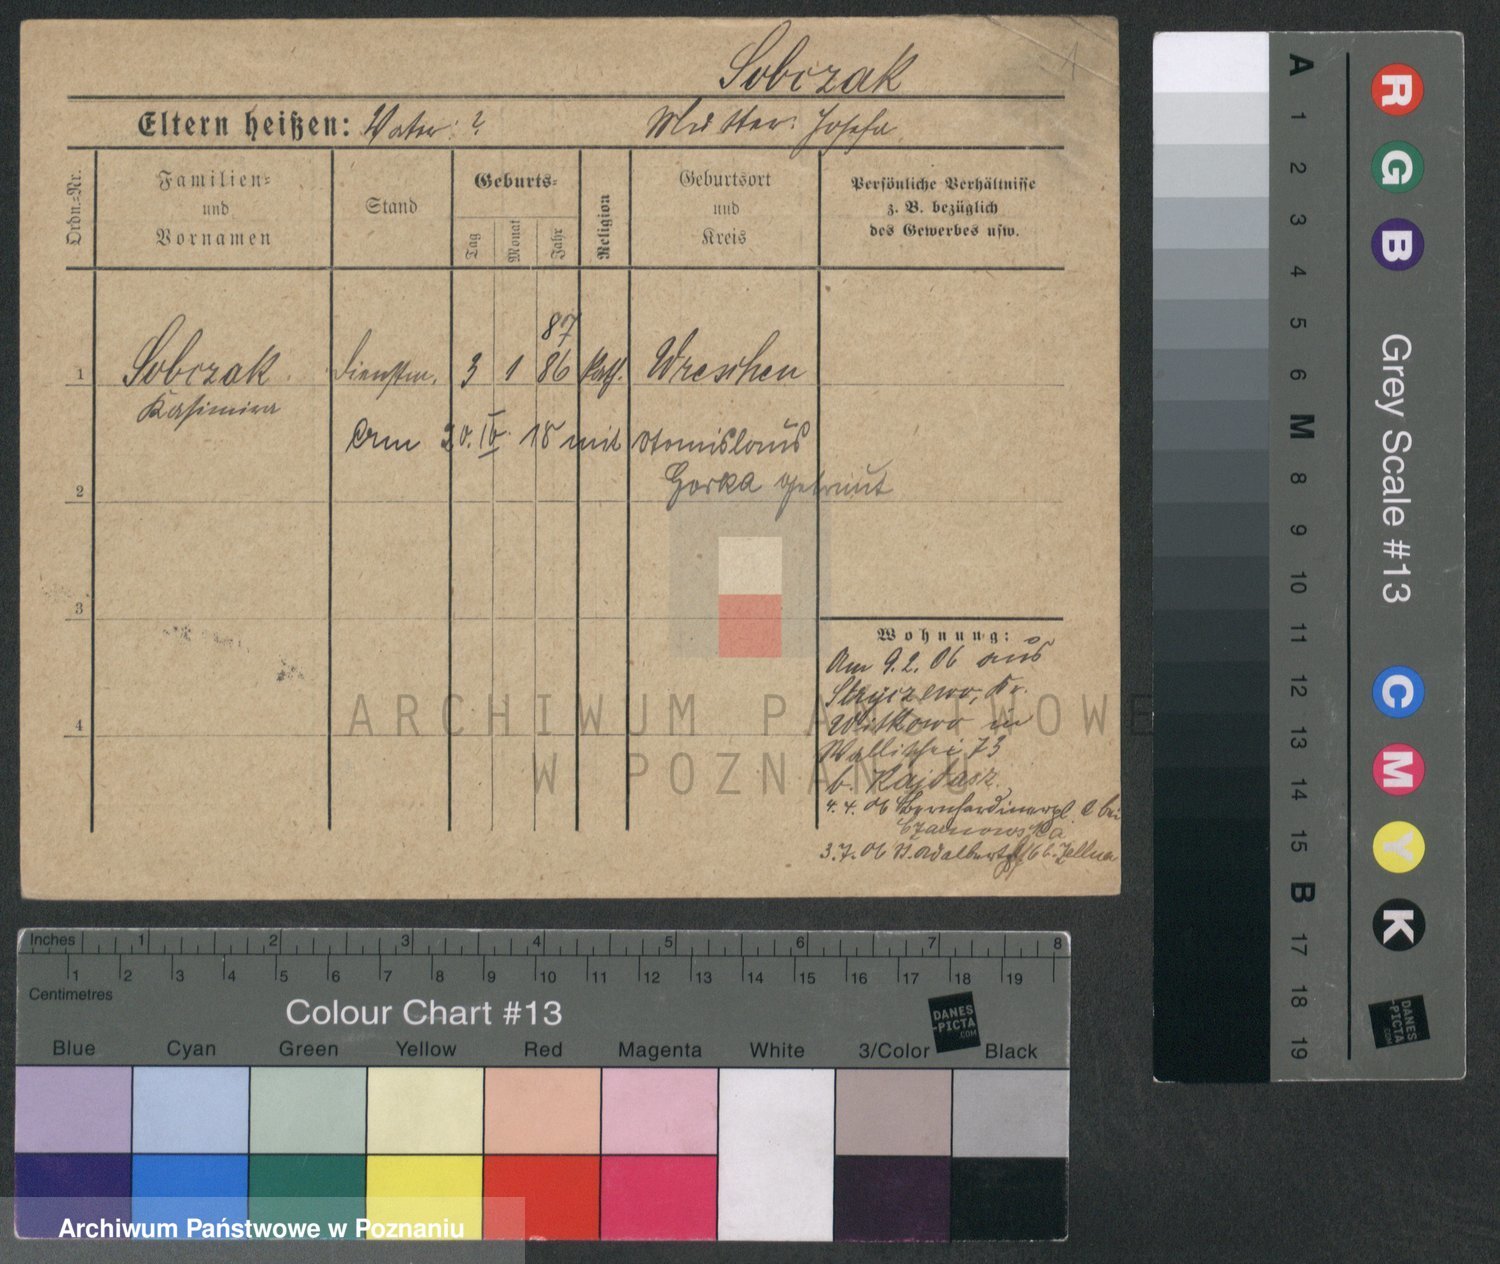 Sobczak
1
Eltern heißen: Vater: ? Mutter: Josefa
Ordn.-Nr.
Familien-
und
Vornamen
Stand
Geburts-
Tag
Monat
Jahr
Religion
Geburtsort
und
Kreis
Persönliche Verhältnisse
z. B. bezüglich
des Gewerbes usw.
87
1 Sobczak Dienstm. 3 1 86 kath. Wreschen
Kasimira
Am 20. IV. 18 mit Stanislaus
Gorka getraut
2
3
4
Wohnung:
Am 9.2.06 aus
Skryczewo, Kr.
Witkowo in
Wallischei 73
b. Kajdasz
4.4.06 Bernhardinerpl. bei
Czarnowska
3.7.06 St. Adalbert b. Zellner
ARCHIWUM PAŃSTWOWE
W POZNANIU
Inches 1 2 3 4 5 6 7 8
1 2 3 4 5 6 7 8 9 10 11 12 13 14 15 16 17 18 19
Centimetres
Colour Chart #13
DANES
-PICTA
.COM
Blue Cyan Green Yellow Red Magenta White 3/Color Black
Archiwum Państwowe w Poznaniu
A 1 2 3 4 5 6 M 8 9 10 11 12 13 14 15 B 17 18 19
R G B Grey Scale #13 C M Y K
DANES
-PICTA
.COM